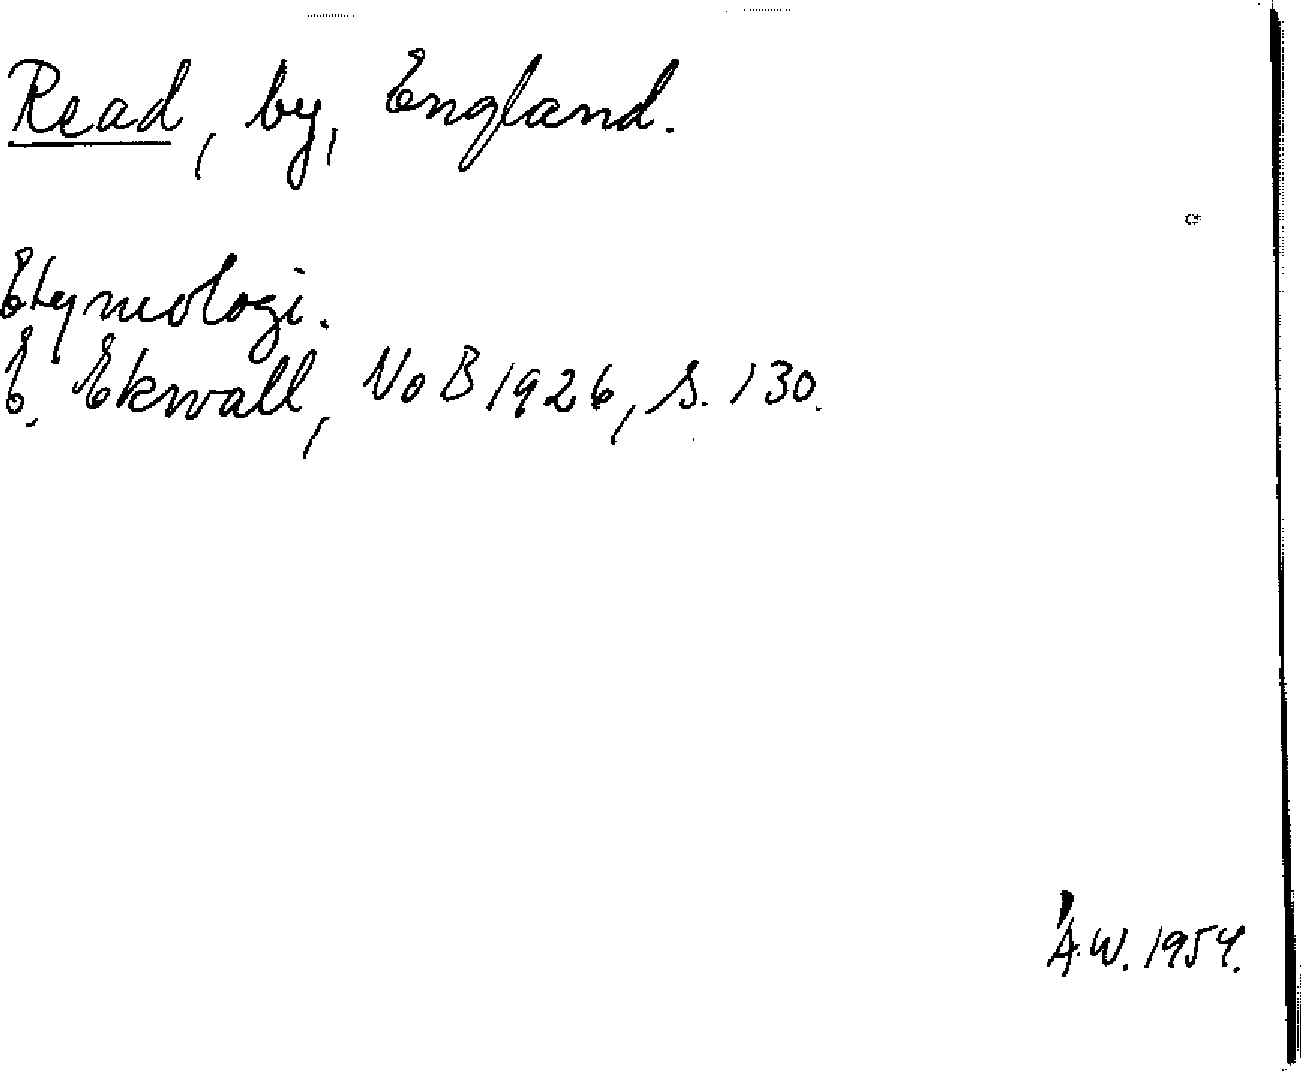 Read, by, England.
Etymologi.
E. Ekwall, NoB 1926, s. 130.
Å.W. 1954.